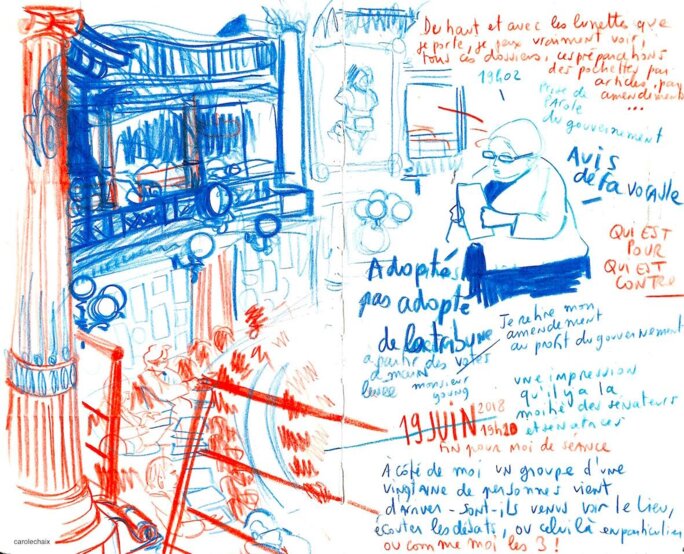 Du haut et avec les lunettes que
je porte, je peux vraiment voir,
tous ces dossiers, ces préparations
des pochettes par
articles, par
amendements
...
19h02
Prise de
parole
du gouvernement
Avis
défavorable
QUI EST
POUR
QUI EST
CONTRE
Adoptés
pas adopté
de la tribune
à partir des votes
à main
levée
monsieur
young
Je retire mon
amendement
au profit du gouvernement
une impression
qu'il y a la
moitié des sénateurs
et sénatrices
19 JUIN 2018
19h20
fin pour moi de séance
À côté de moi un groupe d'une
vingtaine de personnes vient
d'arriver - sont-ils venus voir le lieu,
écouter les débats, ou celui là en particulier
ou comme moi les 3 !
carolechaix